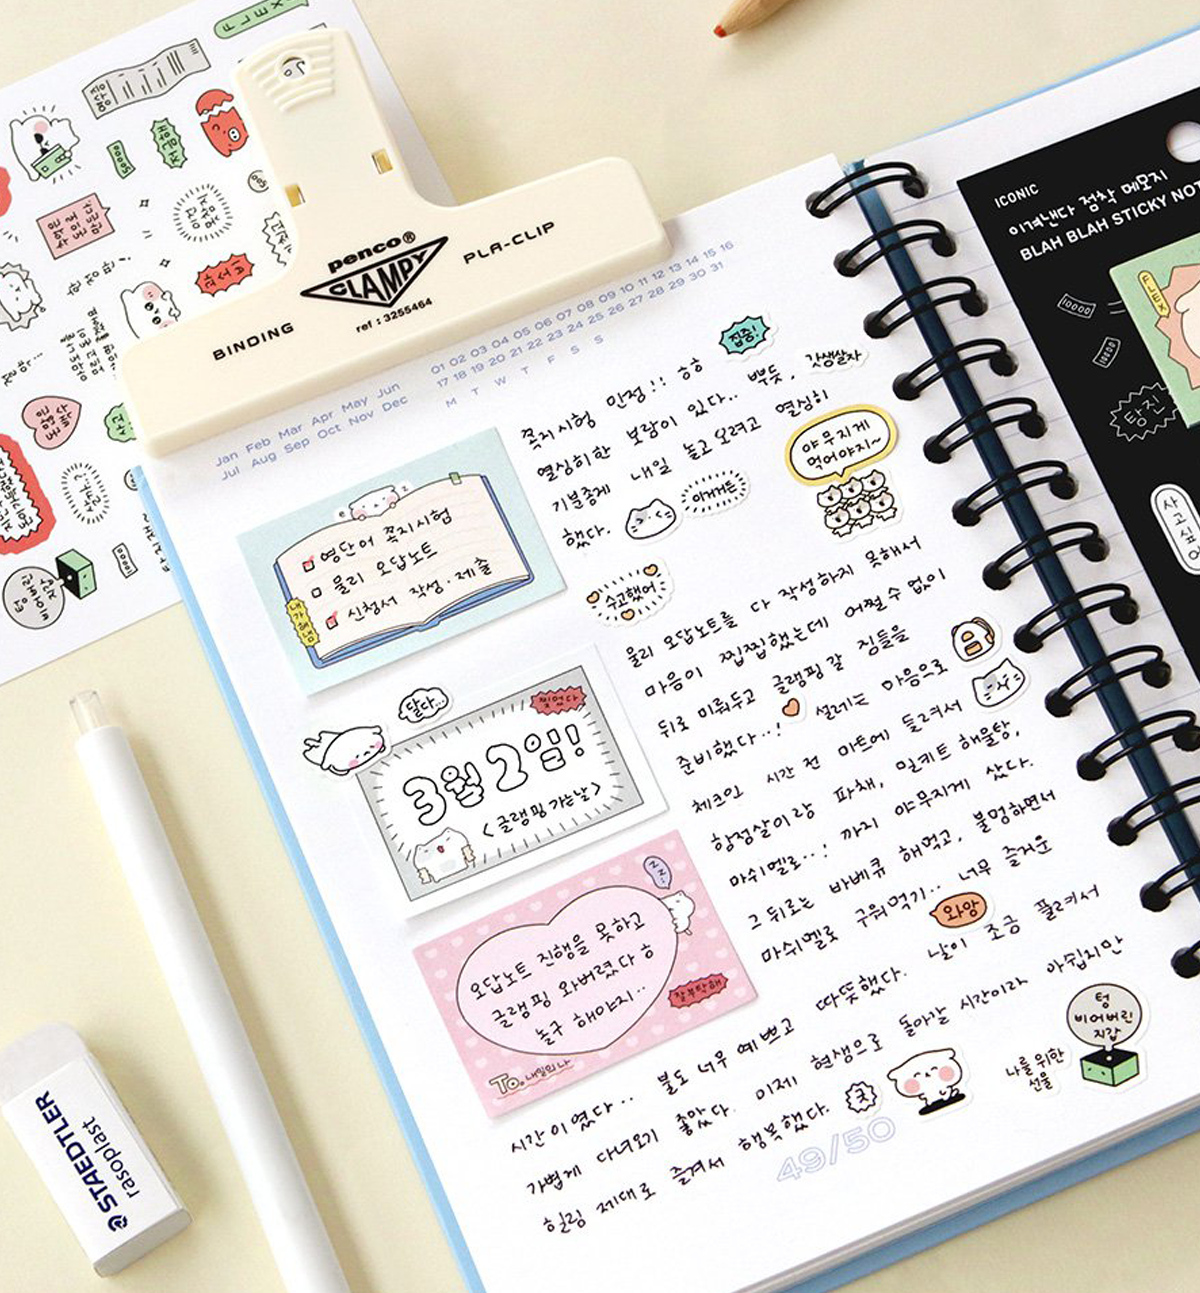 FLEX
영수증
50000
penco®
CLAMPY
PLA-CLIP
BINDING
ref : 3255464
10000
Jan Feb Mar Apr May Jun
Jul Aug Sep Oct Nov Dec
01 02 03 04 05 06 07 08 09 10 11 12 13 14 15 16
17 18 19 20 21 22 23 24 25 26 27 28 29 30 31
M T W T F S S
집중!
갓생살자
쪽지시험 만점!! ㅎㅎ
열심히한 보람이 있다.. 뿌듯.
기분좋게 내일 놀고오려고 열심히
했다.
이거거든
야무지게
먹어야지~
수고했어
영단어 쪽지시험
물리 오답노트
신청서 작성·제출
내가해냄
물리 오답노트를 다 작성하지 못해서
마음이 찝찝했는데 어쩔 수 없이
뒤로 미뤄두고 글램핑 갈 짐들을
준비했다..! 설레는 마음으로
체크인 시간 전 마트에 들려서
항정살이랑 파채, 밀키트 해물탕,
마쉬멜로..! 까지 야무지게 샀다.
그 뒤로는 바베큐 해먹고, 불멍하면서
마쉬멜로 구워먹기.. 너무 즐거운
와앙
달다...
찢었다
3월 2일!
<글램핑 가는날>
zz..
오답노트 진행을 못하고
글램핑 와버렸다 ㅎ
놀구 해야지..
잘부탁해
To. 내일의 나
시간이였다.. 불도 너무 예쁘고 따뜻했다. 날이 조금 풀려서
가볍게 다녀오기 좋았다. 이제 현생으로 돌아갈 시간이라 아쉽지만
힐링 제대로 즐겨서 행복했다.
굿
텅
비어버린
지갑
나를 위한
선물
49/50
ICONIC
이겨낸다 점착 메모지
BLAH BLAH STICKY NOT
FLEX
10000
탕진
사고싶어
STAEDTLER
rasoplast